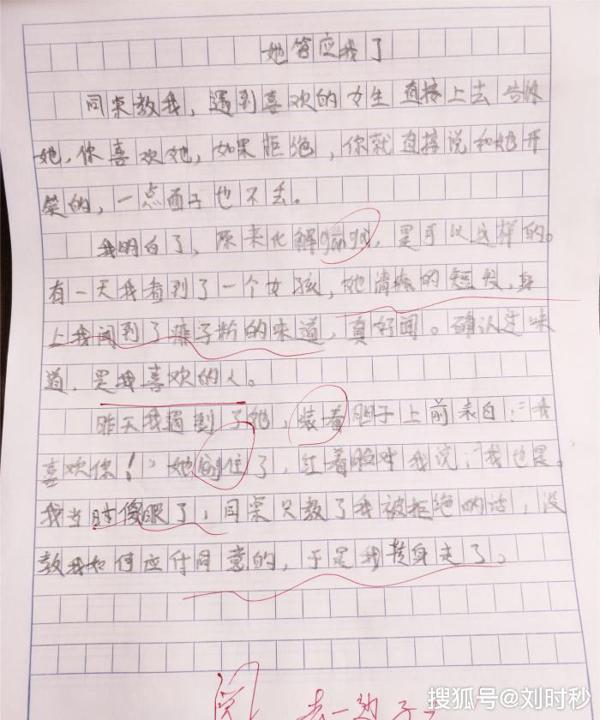 她答应我了
同桌教我，遇到喜欢的女生直接上去告诉
她，你喜欢她，如果拒绝，你就直接说和她开
笑的，一点面子也不丢。
我明白了，原来化解尴尬，是可以这样的。
有一天我看到了一个女孩，她清爽的短发，身
上我闻到了
的味道，真好闻。确认过味
道，是我喜欢的人。
昨天我遇到了她，装着胆子上前表白：“我
喜欢你！”她
住了，红着脸对我说：“我也是。
我当时傻眼了，同桌只教了我被拒绝的话，没
教我如何应付同意的，于是我转身走了。
阅
搜狐号@刘时秒